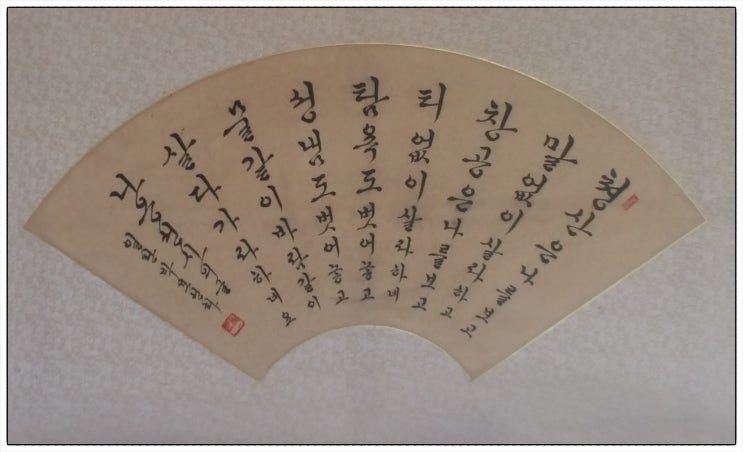 청산은 나를보고
말없이 살라하고
창공은 나를보고
티없이 살라하네
탐욕도 벗어놓고
성냄도 벗어놓고
물같이 바람같이
살다가라하네요
나옹선사의글